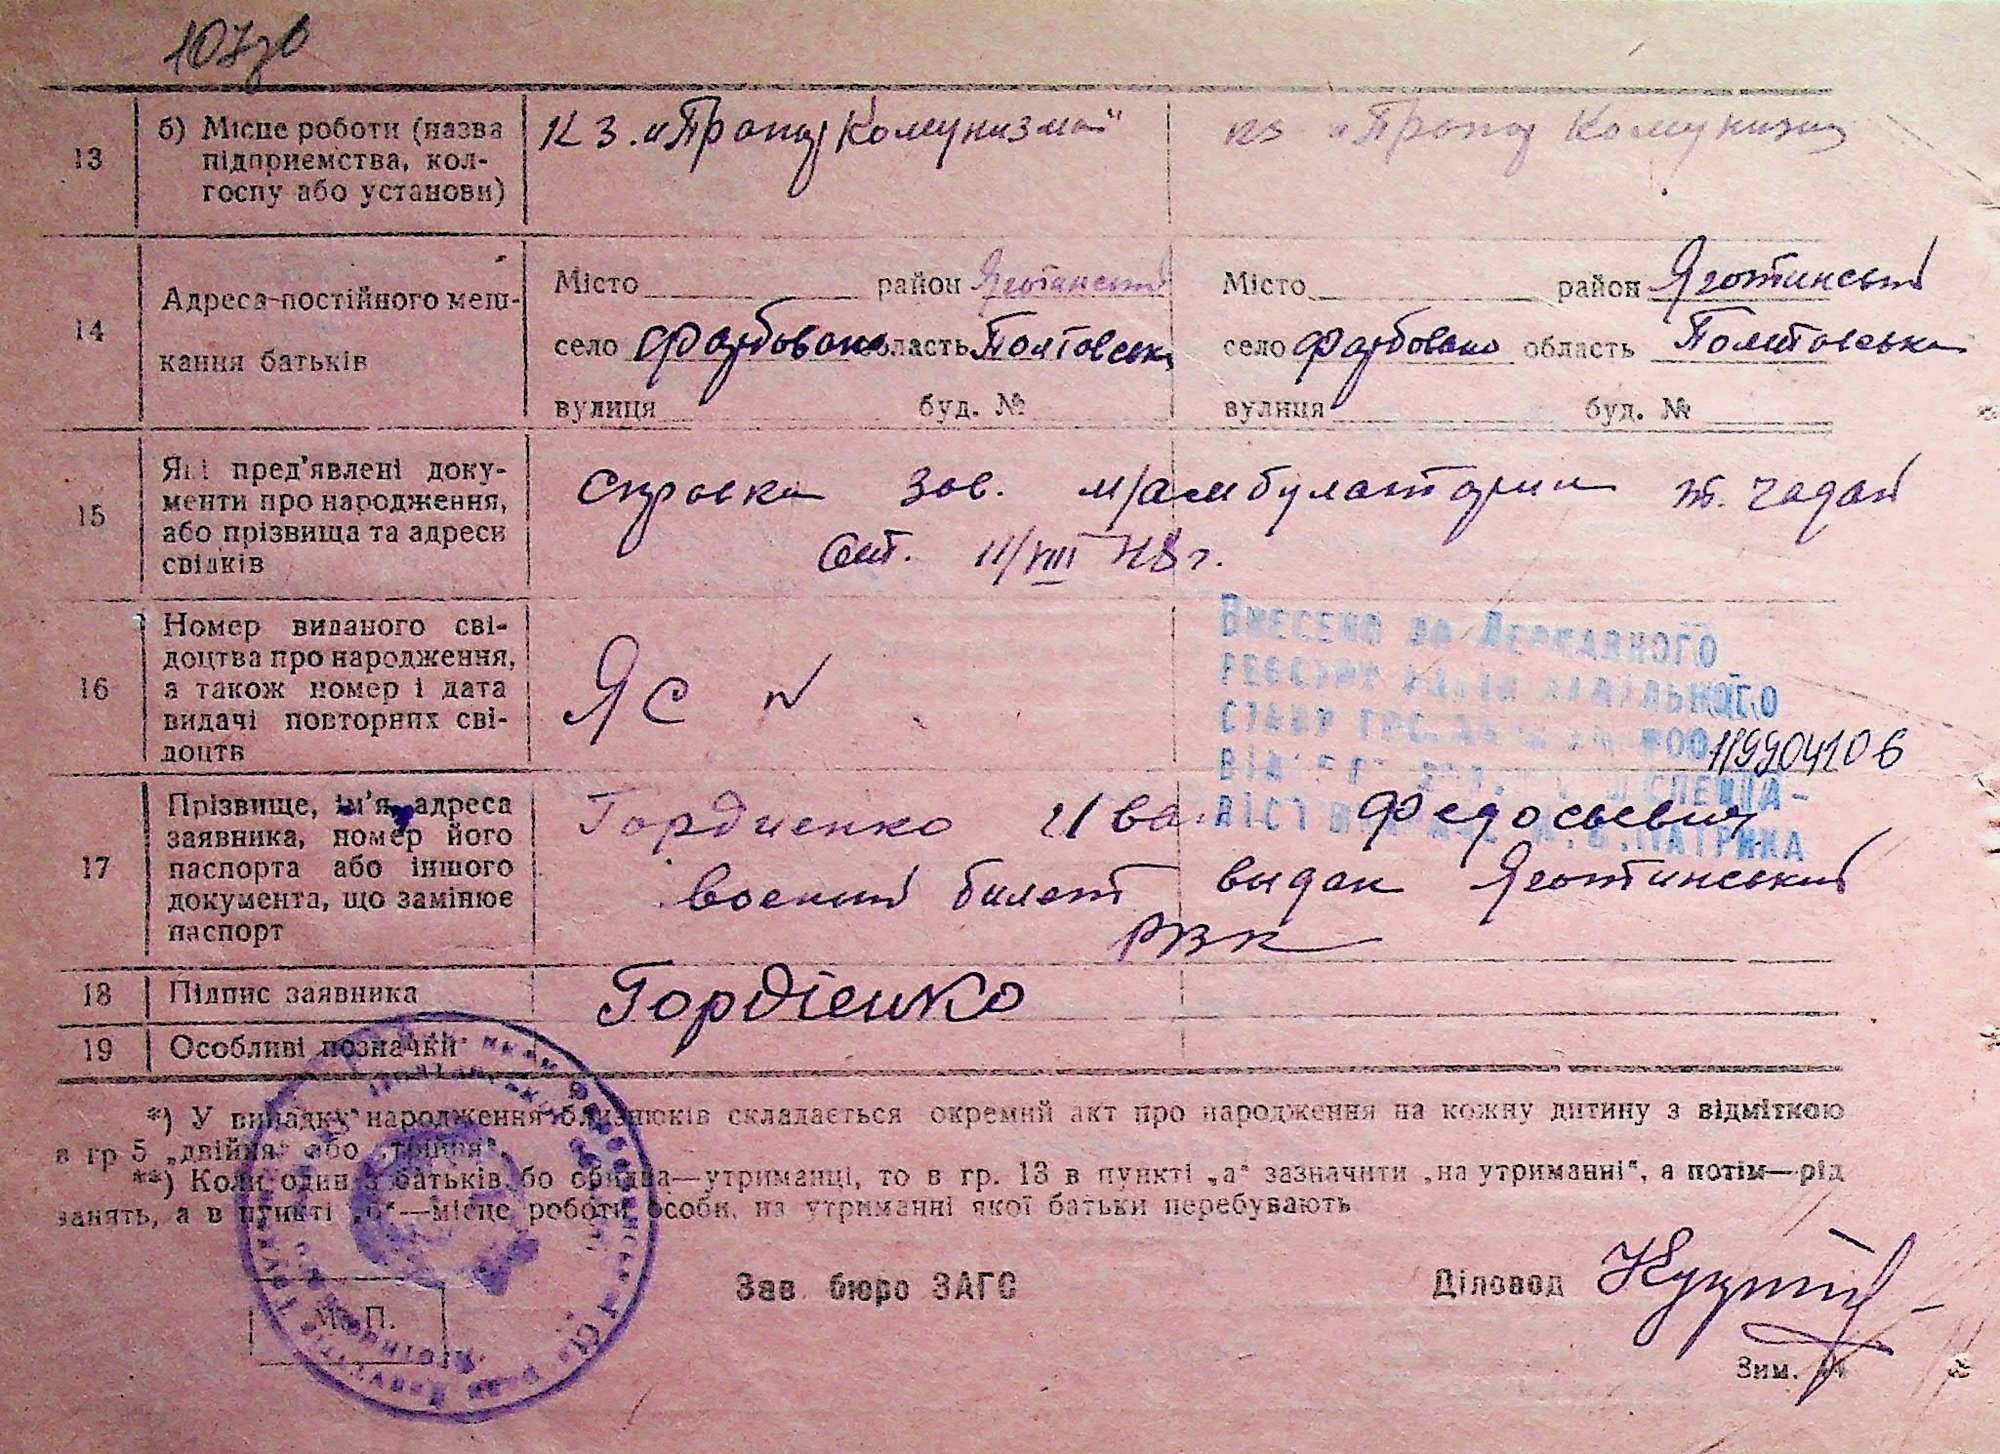 107зв
13
б) Місце роботи (назва
підприємства, кол-
госпу або установи)
КЗ. „Прапор Комунизма"
КЗ „Прапор Комунизма
14
Адреса постійного меш-
кання батьків
Місто район Яготинський
село Фарбовано область Полтовська
вулиця буд. №
Місто район Яготинський
село Фарбовано область Полтовська
вулиця буд. №
15
Які пред'явлені доку-
менти про народження,
або прізвища та адреси
свідків
Справка зав. м/амбулатории т.
от. 11/VIII 48 г.
16
Номер виданого сві-
доцтва про народження,
а також номер і дата
видачі повторних сві-
доцтв
ЯС №
Внесено до Державного
реєстру актів цивільного
стану громадян за №00119904106
спеціа-
лістом Патрика
17
Прізвище, ім'я, адреса
заявника, номер його
паспорта або іншого
документа, що замінює
паспорт
Гордиенко Иван Федосьевич
военный билет выдан Яготинський
РВК
18
Підпис заявника
Гордієнко
19
Особливі позначки
*) У випадку народження близнюків складається окремий акт про народження на кожну дитину з відміткою
в гр 5 „двійня" або „трійня".
**) Коли один з батьків, бо обидва—утриманці, то в гр. 13 в пункті „а" зазначити „на утриманні", а потім—рід
занять, а в пункті „б"—місце роботи особи, на утриманні якої батьки перебувають
М. П.
Зав. бюро ЗАГС
Діловод
Зим. 44